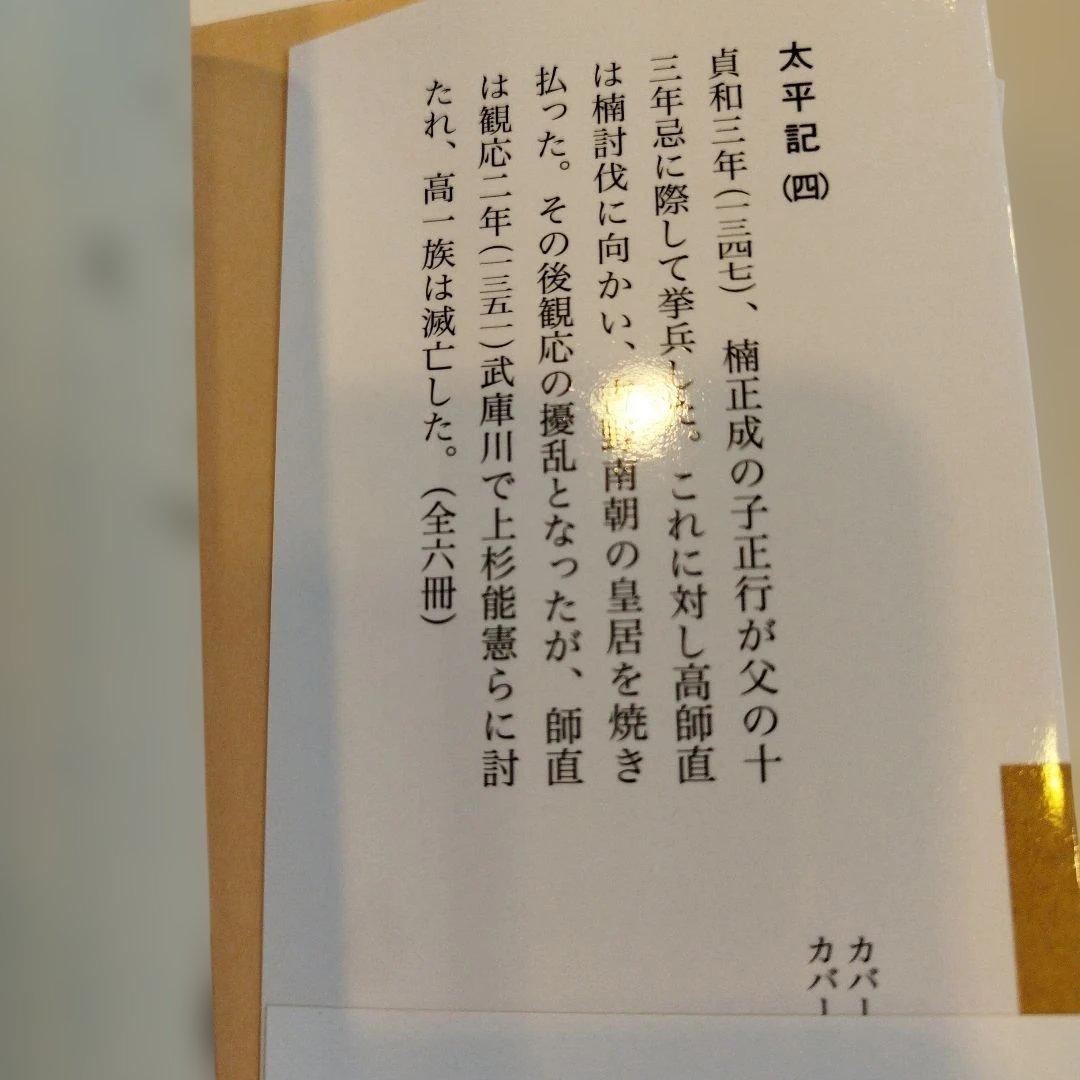 太平記(四)
貞和三年(一三四七)、楠正成の子正行が父の十
三年忌に際して挙兵した。これに対し高師直
は楠討伐に向かい、野南朝の皇居を焼き
払った。その後観応の擾乱となったが、師直
は観応二年(一三五一)武庫川で上杉能憲らに討
たれ、高一族は滅亡した。(全六冊)
カバー
カバー